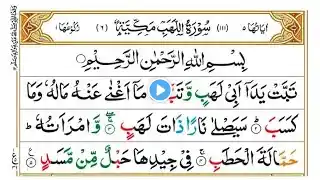 اٰیَاتُهَا ٥ (١١١) سُوْرَةُ اللَّهَبِ مَكِّیَّةٌ (٦) رُكُوْعُهَا ١
بِسْمِ اللهِ الرَّحْمٰنِ الرَّحِیْمِ
تَبَّتْ یَدَاۤ اَبِیْ لَهَبٍ وَّتَبَّ مَاۤ اَغْنٰى عَنْهُ مَالُهٗ وَمَا
كَسَبَ سَیَصْلٰى نَارًا ذَاتَ لَهَبٍ وَّامْرَاَتُهٗ ط
حَمَّالَةَ الْحَطَبِ فِیْ جِیْدِهَا حَبْلٌ مِّنْ مَّسَدٍ